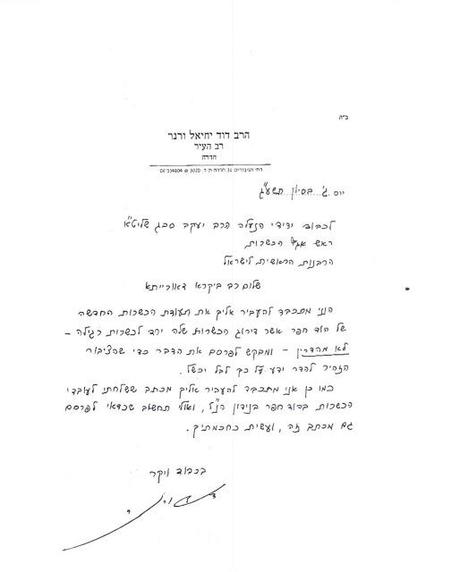 ב"ה
הרב דוד יחיאל ורנר
רב העיר
חדרה
יום ג' בסיון תשע"ג
לכבוד ידידי הנעלה הרב יעקב סבג שליט"א
ראש אגף הכשרות
הרבנות הראשית לישראל
שלום רב ביקרא דאורייתא
הנני מתכבד להעביר אליך את תעודת הכשרות החדשה
של הוד חפר אשר דירוג הכשרות שלה ירד לכשרות רגילה -
לא מהדרין - ומבקש לפרסם את הדבר כדי שהציבור
הזהיר להדר ידע על כך לבל יכשל.
כמו כן אני מתכבד להעביר אליך מכתב ששלחתי לעובדי
הכשרות בהוד חפר בנידון הנ"ל, ואולי תחשוב שכדאי לפרסם
גם מכתב זה, ועשית כחכמתיך.
בכבוד ויקר